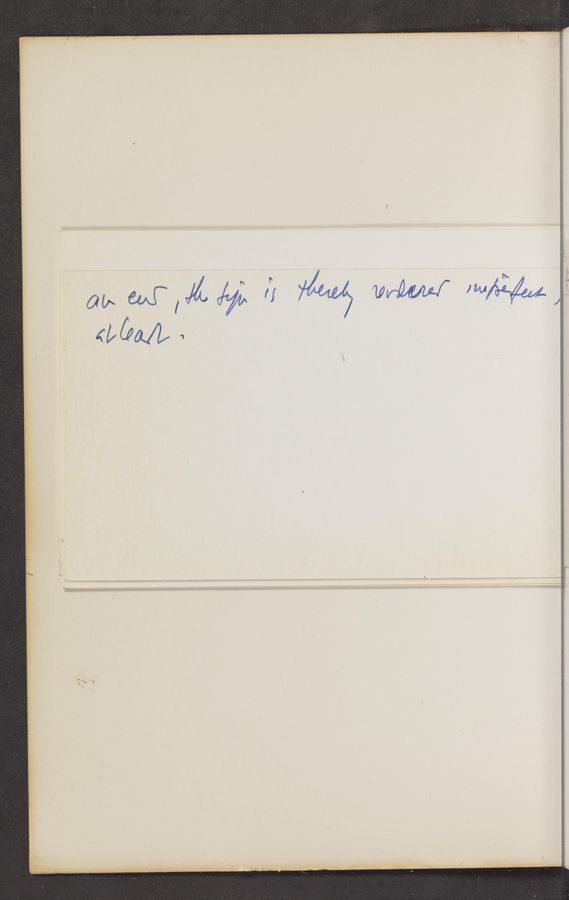 an end, the sign is thereby rendered imperfect,
at least.